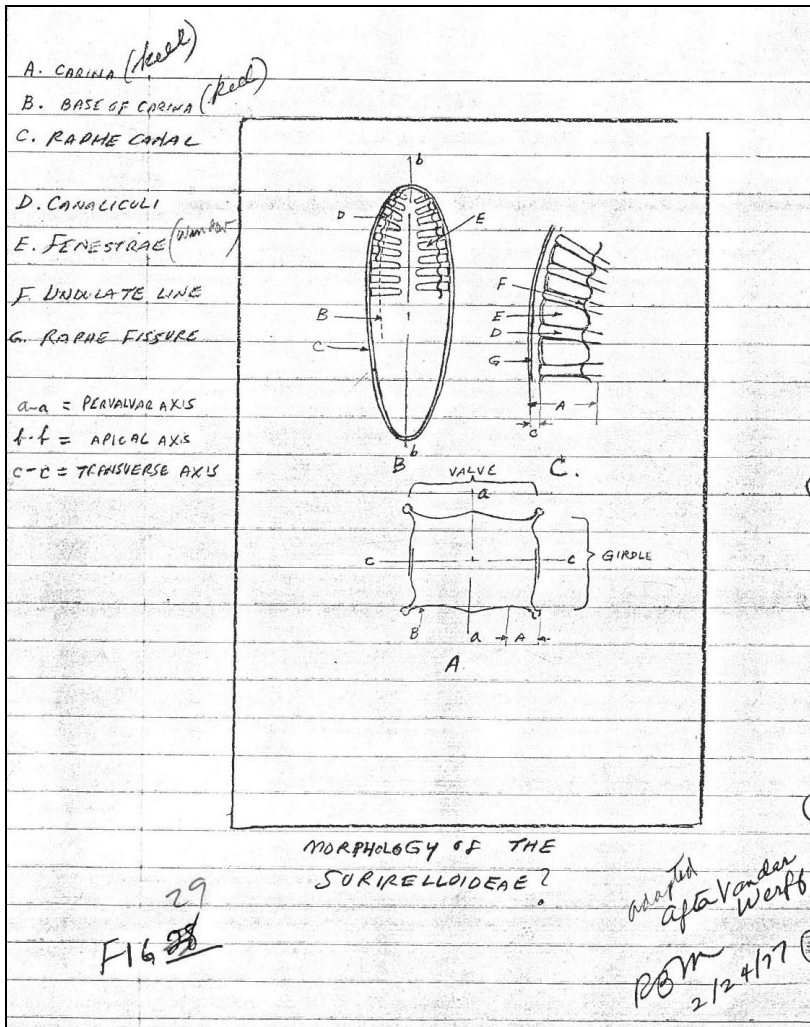 A. CARINA (keel)
B. BASE OF CARINA (keel)
C. RAPHE CANAL
D. CANALICULI
E. FENESTRAE (window)
F. UNDULATE LINE
G. RAPHE FISSURE
a-a = PERVALVAR AXIS
b-b = APICAL AXIS
c-c = TRANSVERSE AXIS
b
D
E
B
C
b
B
F
E
D
G
A
C
C.
VALVE
a
c
c
GIRDLE
B
a
A
A
MORPHOLOGY OF THE
SURIRELLOIDEAE?
29
FIG 28
adapted
after Vander
Werff
RBM
2/24/77